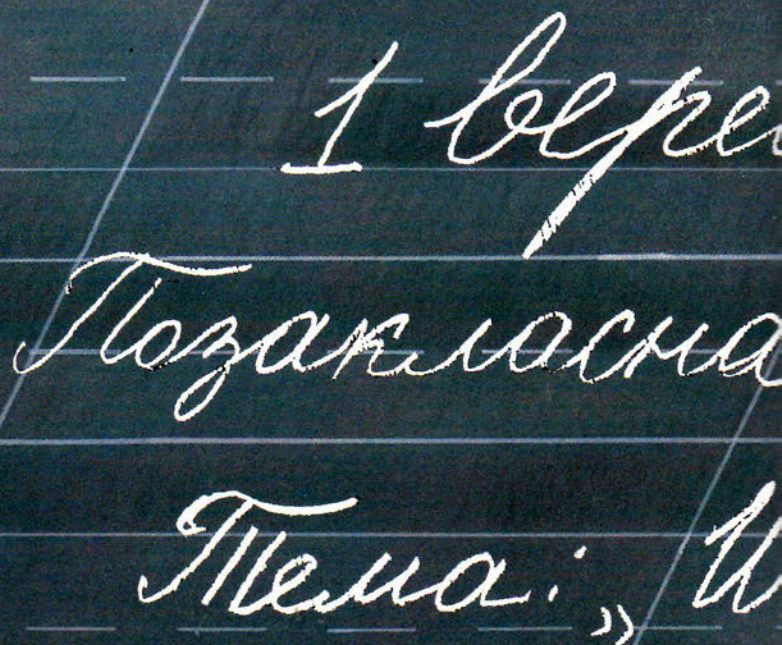 1 вере
Позакласна
Тема: „